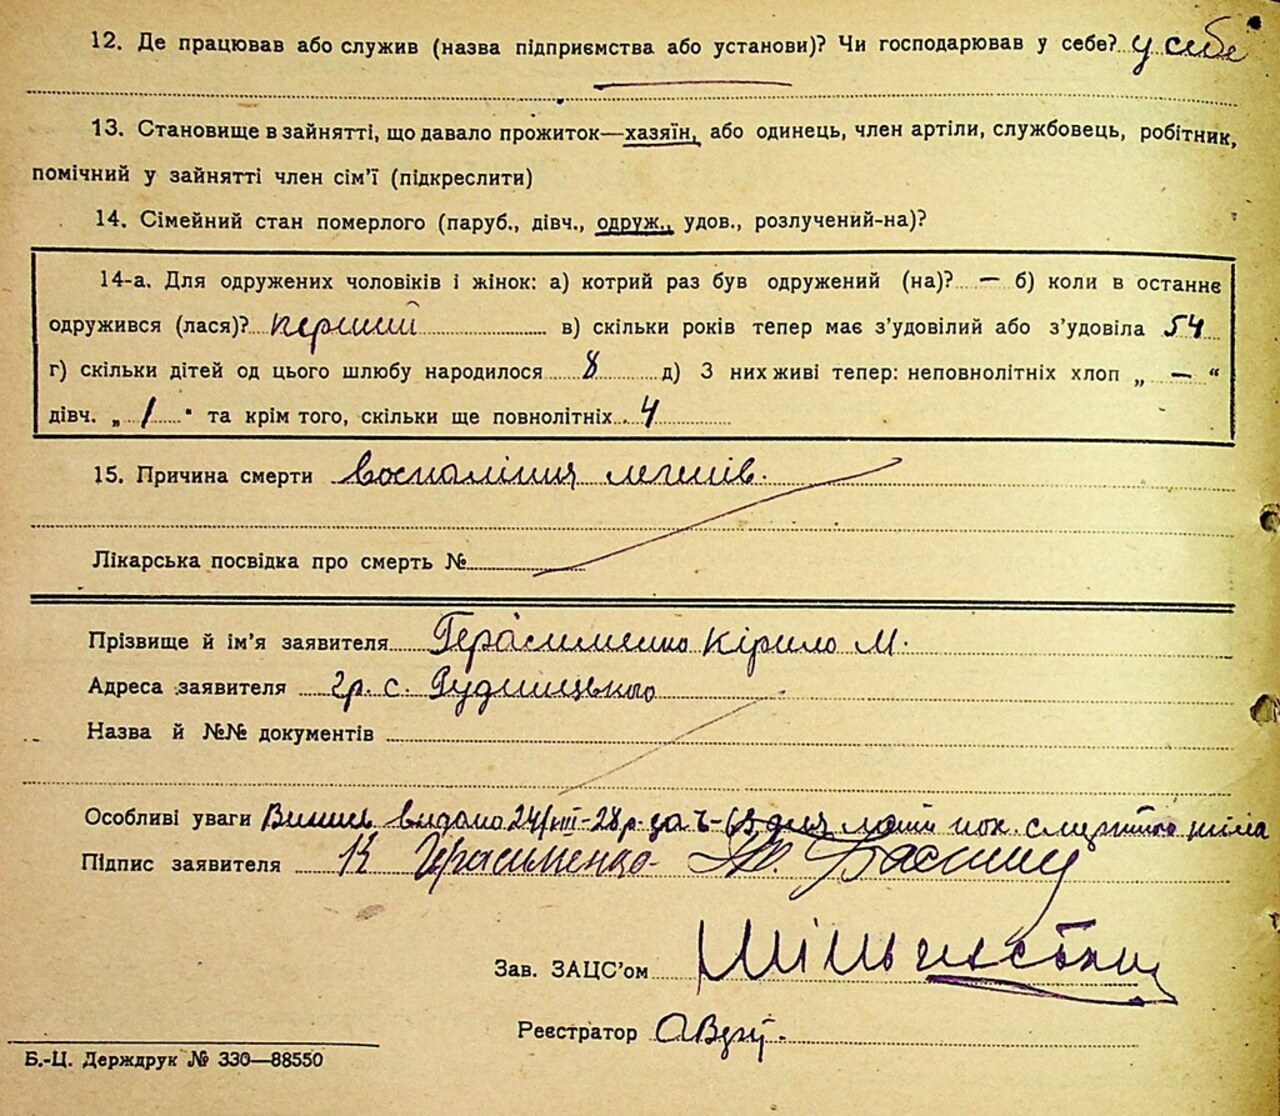 12. Де працював або служив (назва підприємства або установи)? Чи господарював у себе? у себе
13. Становище в зайнятті, що давало прожиток—хазяїн, або одинець, член артіли, службовець, робітник,
помічний у зайнятті член сім’ї (підкреслити)
14. Сімейний стан померлого (паруб., дівч., одруж., удов., розлучений-на)?
14-а. Для одружених чоловіків і жінок: а) котрий раз був одружений (на)? — б) коли в останнє
одружився (лася)? перший в) скільки років тепер має з’удовілий або з’удовіла 54
г) скільки дітей од цього шлюбу народилося 8 д) З них живі тепер: неповнолітніх хлоп „ — “
дівч. „ 1 " та крім того, скільки ще повнолітніх 4
15. Причина смерти воспаління легенів.
Лікарська посвідка про смерть №
Прізвище й ім’я заявителя Герасименко Кірило М.
Адреса заявителя гр. с. Рудницького
Назва й №№ документів
Особливі уваги видано 24/VIII-28р. за
Підпис заявителя К Герасименко
Зав. ЗАЦС’ом
Реєстратор
Б.-Ц. Держдрук № 330—88550